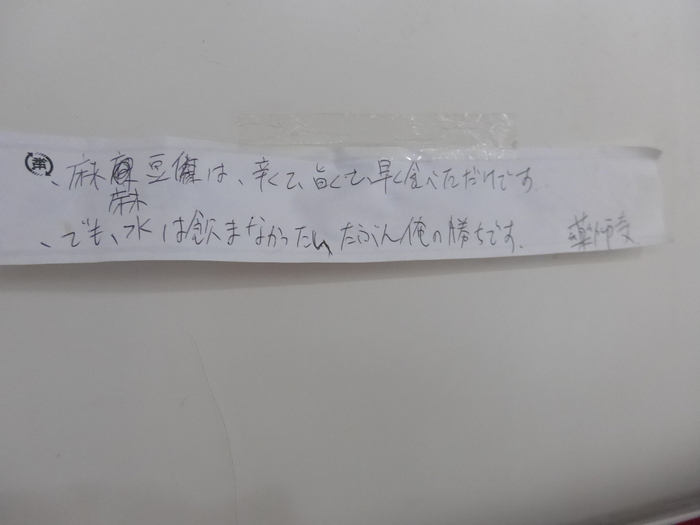 、麻婆豆腐は、辛くて、旨くて、早く食べただけです
、でも、水は飲まなかったし、たぶん俺の勝ちです.